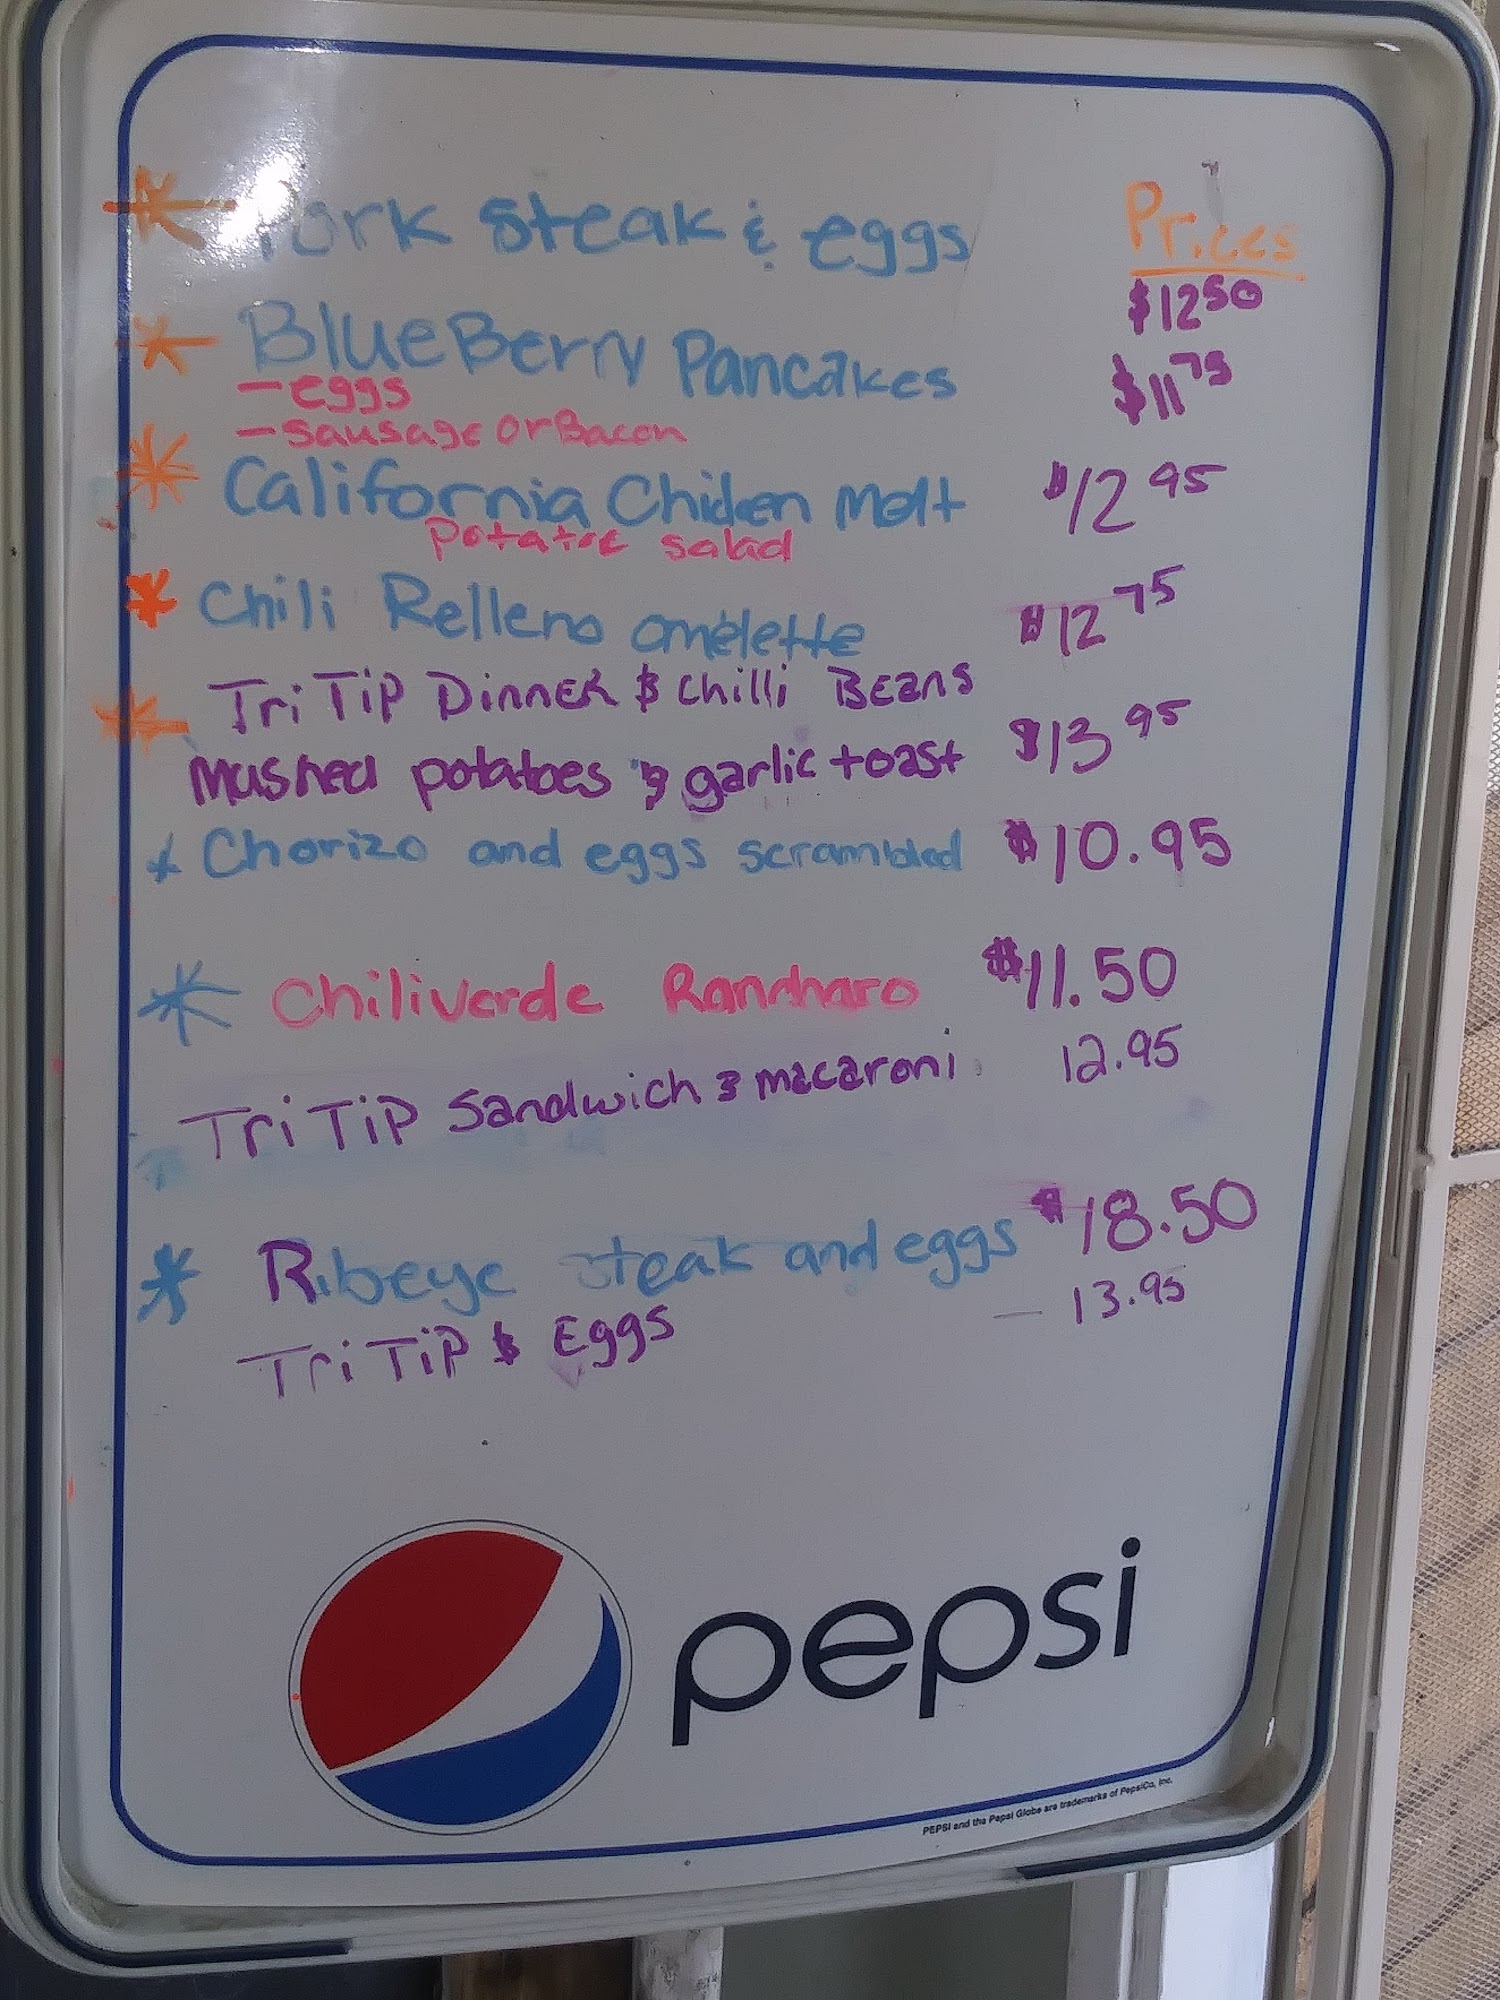 Pork steak & eggs
Prices
$12.50
BlueBerry Pancakes $11.75
- eggs
- sausage or Bacon
California Chicken Melt $12.95
potatoe salad
Chili Relleno omelette $12.75
Tri Tip Dinner & chilli Beans
Mashed potatoes & garlic toast $13.95
Chorizo and eggs scrambled $10.95
Chiliverde Rancharo $11.50
Tri Tip Sandwich & macaroni 12.95
Ribeye steak and eggs $18.50
Tri Tip & Eggs - 13.95
pepsi
PEPSI and the Pepsi Globe are trademarks of PepsiCo, Inc.